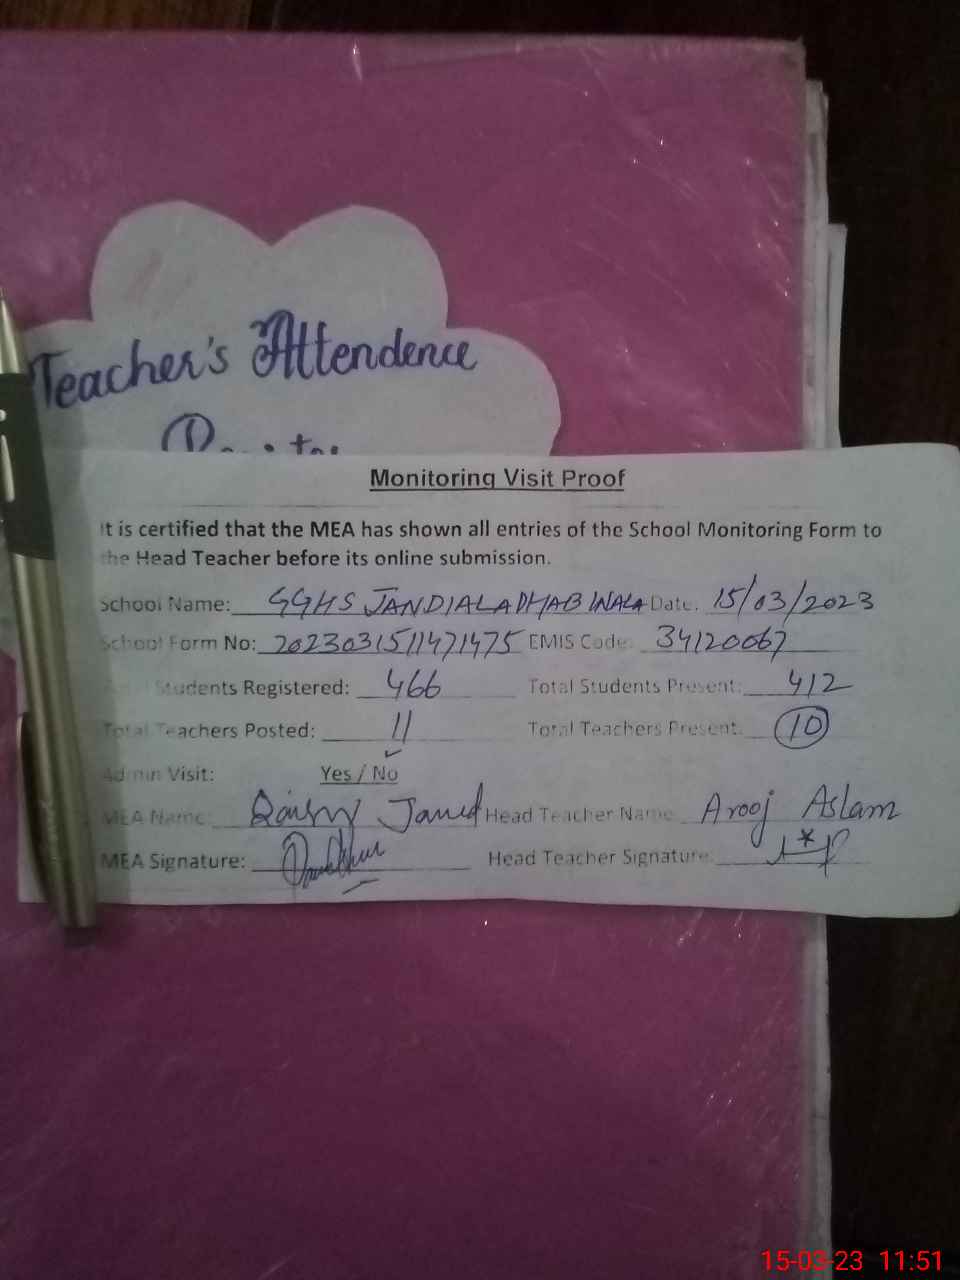 Teacher's Attendence
Monitoring Visit Proof
It is certified that the MEA has shown all entries of the School Monitoring Form to
the Head Teacher before its online submission.
School Name: GGHS JANDIALA DHAB WALA Date: 15/03/2023
School Form No: 2023031511471475 EMIS Code: 34120067
Students Registered: 466 Total Students Present: 412
Total Teachers Posted: 11 Total Teachers Present: 10
Admin Visit: Yes / No
MEA Name: Javed Head Teacher Name: Arooj Aslam
MEA Signature: Head Teacher Signature:
15-03-23 11:51